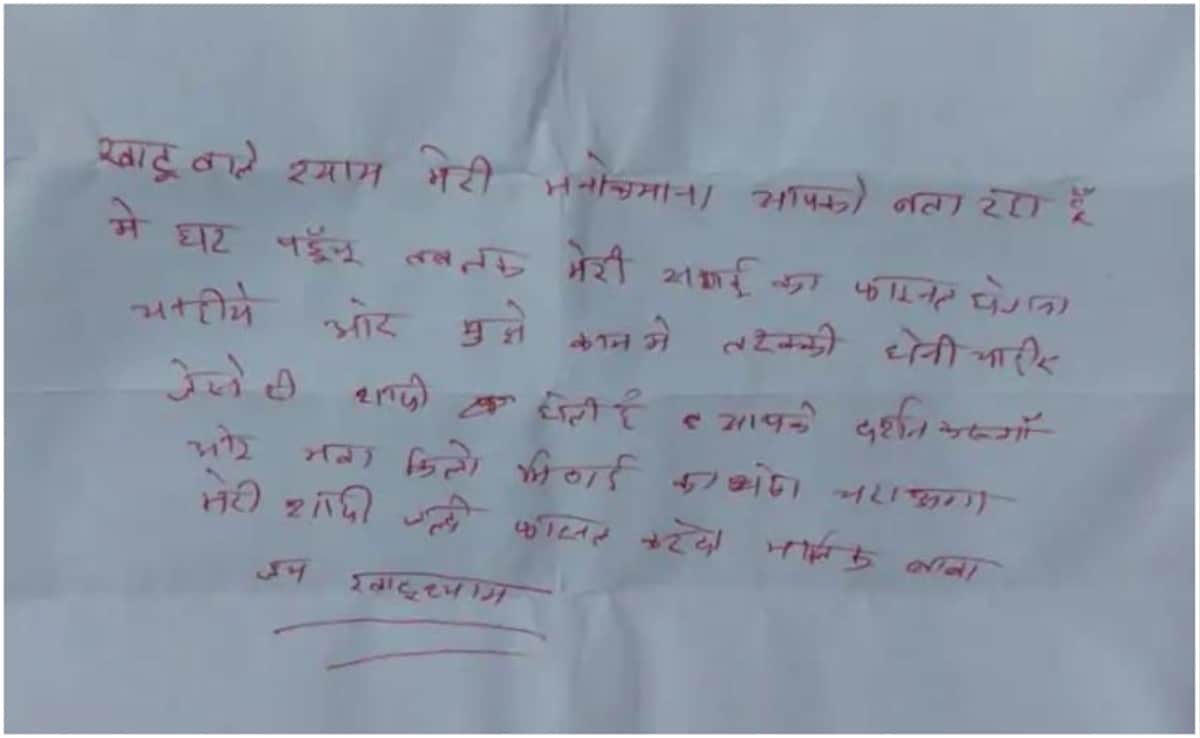 खाटू वाले श्याम मेरी मनोकमाना आपको बता रहा हूँ
मे घर पहूँचू तबतक मेरी सगाई का फाइनल होना
चाहीये ओर मुझे काममे तरक्की होनी चाहीए
जेसे ही शादी होती है आपके दर्शन करूगाँ
ओर सवा किलो मिठाई का भोग चढाऊगा
मेरी शादी जल्दी फाइनल करदो मालिक बाबा
जय खाटूश्याम